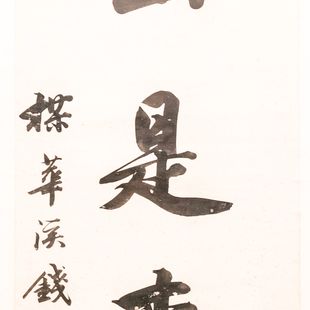 是
楳華溪錢